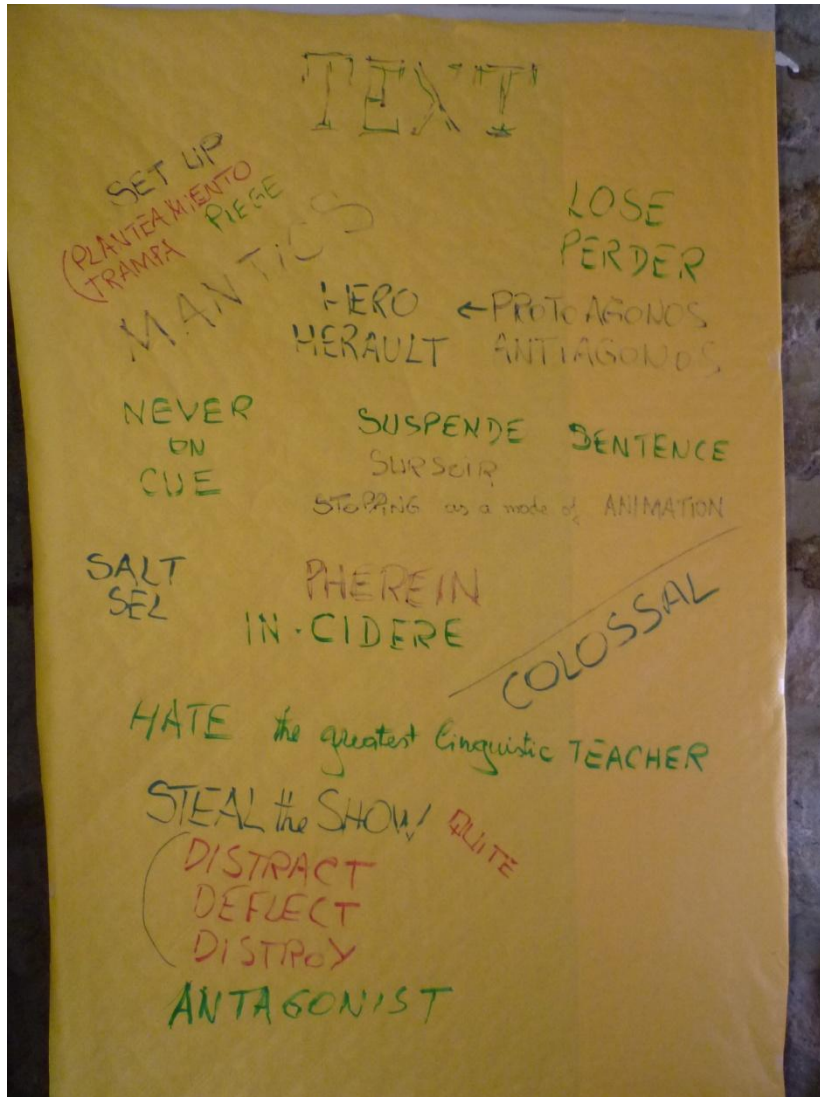 TEXT
SET UP
(PLANTEAMIENTO
TRAMPA PIEGE
MANTICS
LOSE
PERDER
HERO ← PROTOAGONOS
HERAULT ANTIAGONOS
NEVER
ON
CUE
SUSPENDE SENTENCE
SURSOIR
STOPPING as a mode of ANIMATION
SALT
SEL
PHEREIN
IN·CIDERE
COLOSSAL
HATE the greatest linguistic TEACHER
STEAL the SHOW QUITE
(DISTRACT
DEFLECT
DISTROY
ANTAGONIST